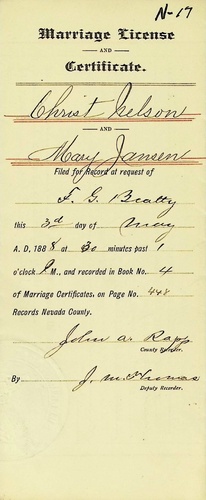 N-17
Marriage License
AND
Certificate.
Christ Nelson
AND
Mary Jansen
Filed for Record at request of
F. G. Beatty
this 3d day of May
A. D. 1888 at 30 minutes past 1
o'clock P M., and recorded in Book No. 4
of Marriage Certificates, on Page No. 448
Records Nevada County.
John A. Rapp
County Recorder.
By J. M. Thomas
Deputy Recorder.